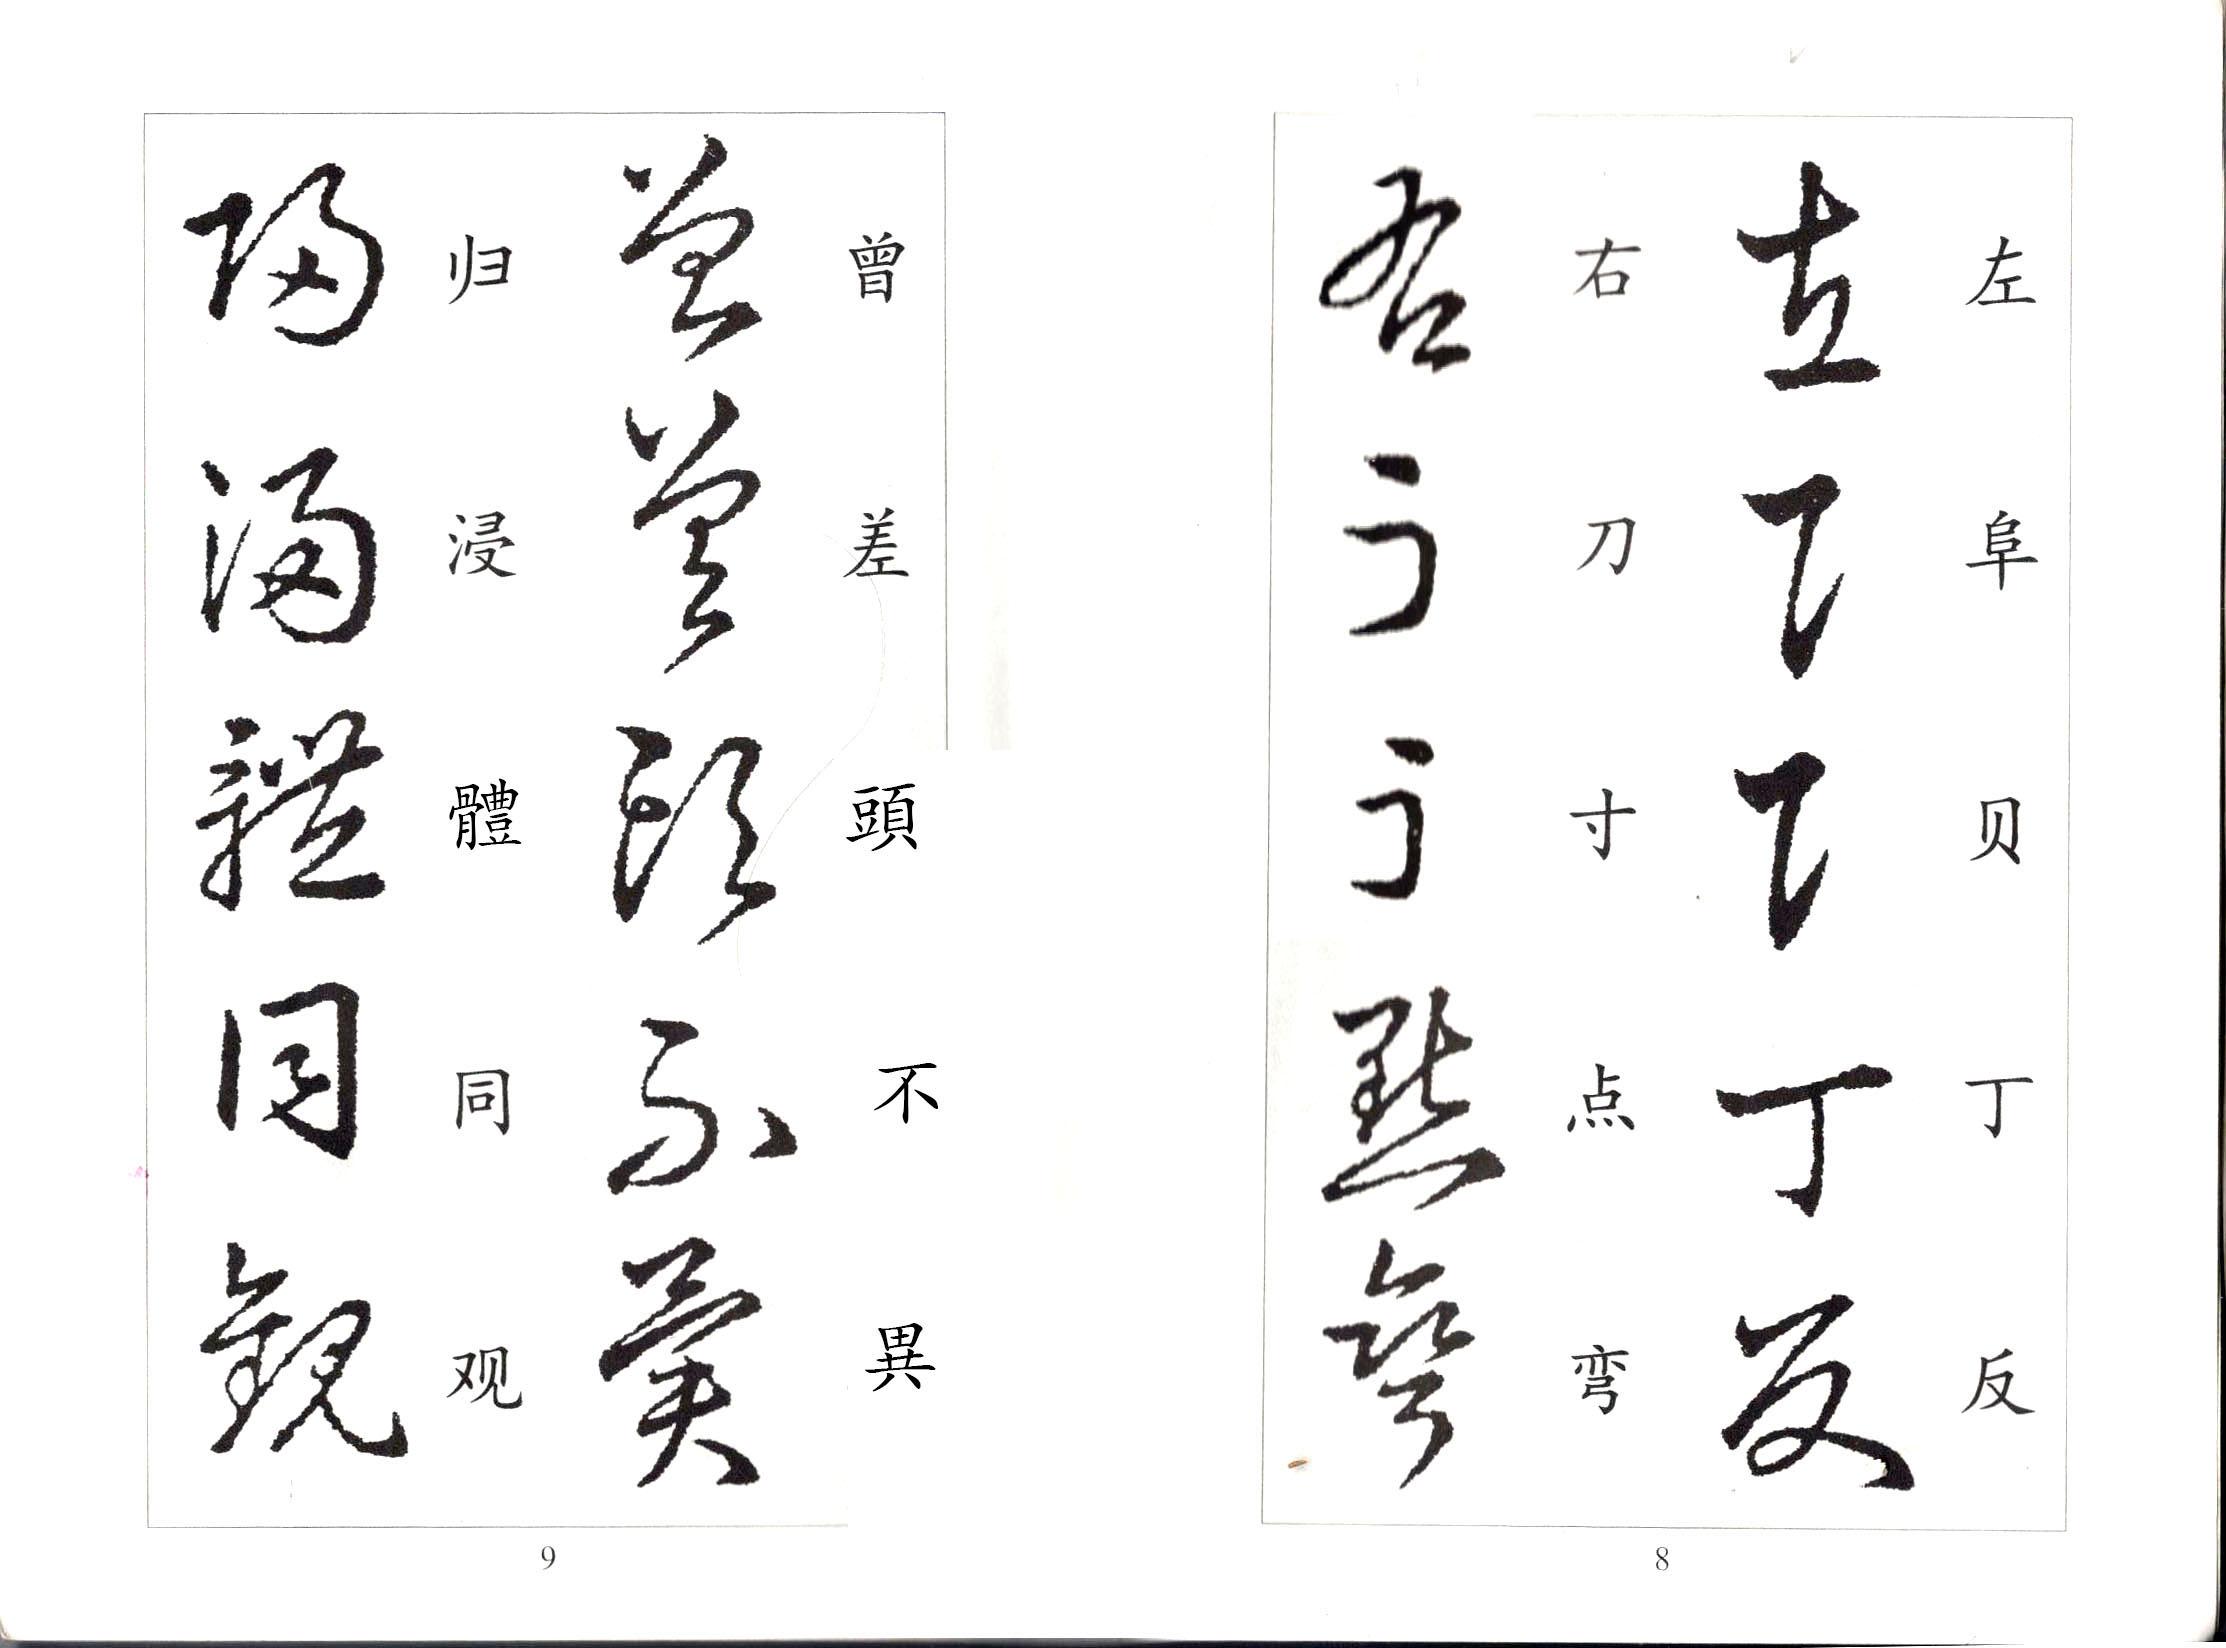 左阜贝丁反
右刀寸点弯
8
曾差頭不異
归浸體同观
9